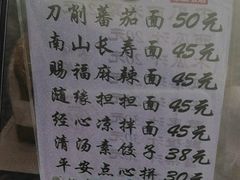 刀削蕃茄面 50元
南山长寿面 45元
赐福麻辣面 45元
随缘担担面 45元
经心凉拌面 45元
清汤素饺子 38元
平安点心拼 30元